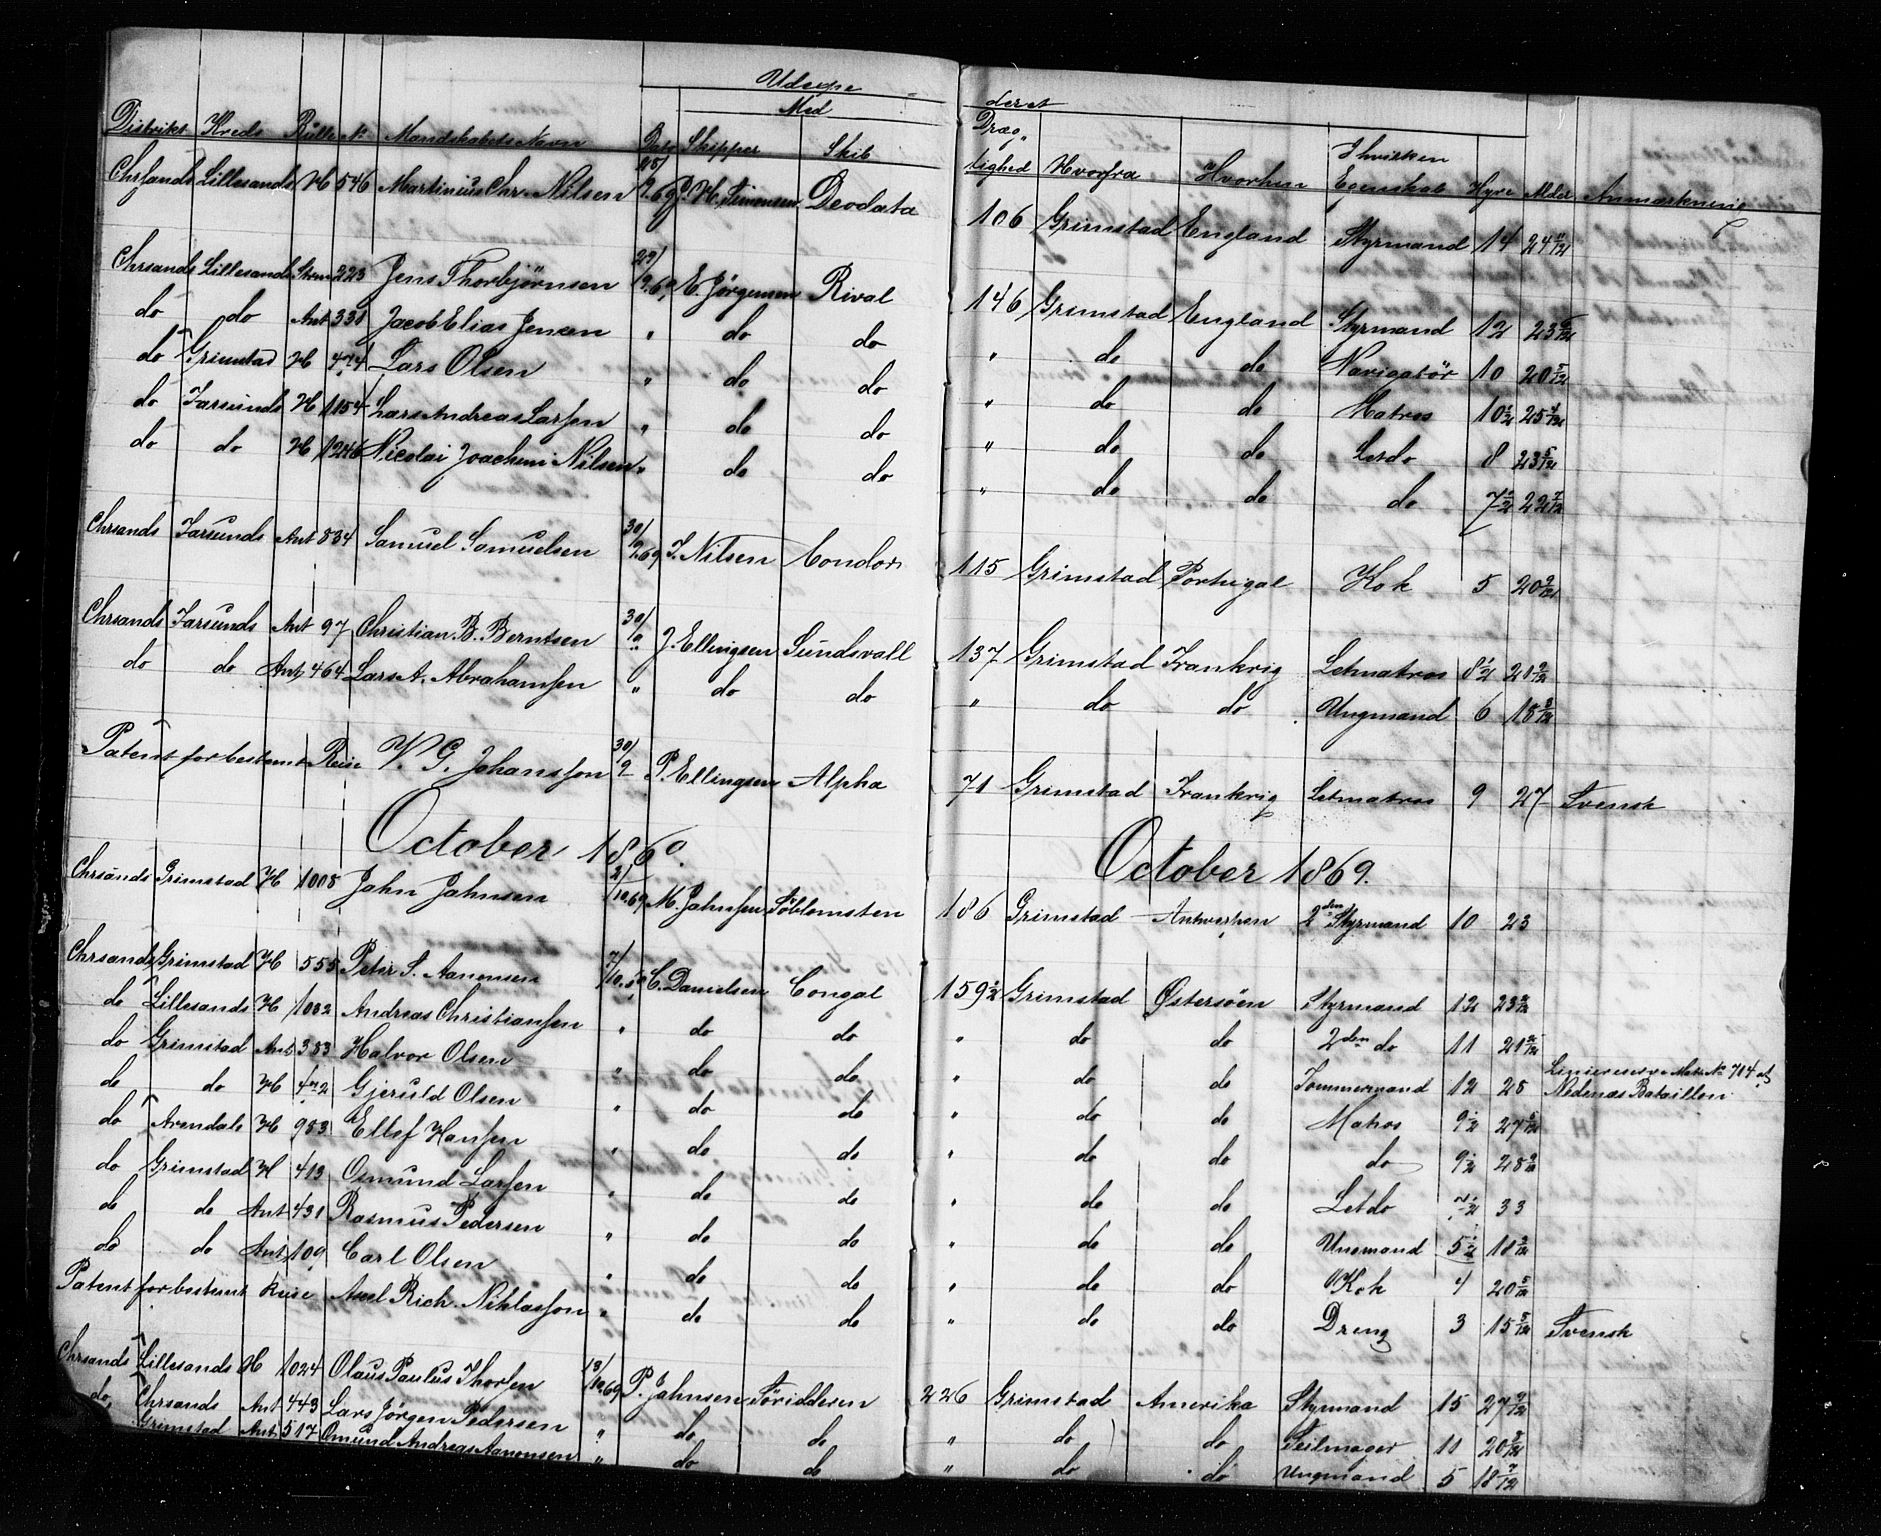 Udexpe deret
Med
Distrikt Kreds Rulle No Mandskabets Navn Dato Skipper Skib Dræg„tighed Hvorfra Hvorhen I hvilken Egenskab Hyre Alder Anmærkning
Chrsands Lillesands H 546 Martinius Chr. Nilsen P. H. Simonsen Deodata 106 Grimstad England Styrmand 14 24 11/12
Chrsands Lillesands 223 Jens Thorbjörnsen 29/9.69 E. Jørgensen Rival 146 Grimstad England Styrmand 12
do do Ant 331 Jacob Elias Jensen " do do " do do Navigatör 10
do Grimstad H 474 Lars Olsen " do do " do do Matros 10½ 25
do Farsunds H 1154 Lars Andreas Larsen " do do " do do Letdo 8 23 5/12
do do H 1246 Nicolai Joachim Nilsen " do do " do do do 7½ 22 7/12
Chrsands Farsunds Ant 834 Samuel Samuelsen 30/9.69 J. Nilsen Condor 115 Grimstad Portugal Kok 5 20
Chrsands Farsunds Ant 97 Christian B. Berntsen 30/9 J. Ellingsen Sundsvall 137 Grimstad Frankrig Letmatros 8½
do do Ant 464 Lars A. Abrahamsen " do do " do do Ungmand 6 18
Patent for bestemt Reise V. G. Johansson 30/9 P. Ellingsen Alpha 71 Grimstad Frankrig Letmatros 9 27 Svensk
October 1869. October 1869.
Chrsands Grimstad H 1008 John Johnsen 2/10.69 M. Johnsen Söblomsten 186 Grimstad Antwerpen 2den Styrmand 10 23
Chrsands Grimstad H 555 Peter S. Aanonsen 7/10 C. Danielsen Congal 159½ Grimstad Østersöen Styrmand 12
do Lillesands H 1082 Andreas Christiansen " do do " do do 2den do 11
do Grimstad Ant 383 Halvor Olsen " do do " do do Tømmermand 12 28 Liniereserve Mats No 704 af Nedenæs Bataillon
do do H Gjeruld Olsen " do do " do do Matros 9½
do Arendals H 983 Ellef Hansen " do do " do do do 9½
do Grimstad H 413 Osmund Larsen " do do " do do Letdo 7½ 33
do do Ant 431 Rasmus Pedersen " do do " do do Ungmand 5½
do do Ant 109 Carl Olsen " do do " do do Kok 4 20 5/12
Patent for bestemt Reise Axel Rich. Niklasson " do do " do do Dreng 3 15 Svensk
Chrsands Lillesands H 1024 Olaus Paulus Thorsen 13/10.69 P. Johnsen Söridderen 226 Grimstad Amerika Styrmand 15
do Chrsands Ant 443 Lars Jörgen Pedersen " do do " do do Seilmager 11
Grimstad Ant 517 Omund Andreas Aanonsen " do do " do do Ungmand 5 18 7/12